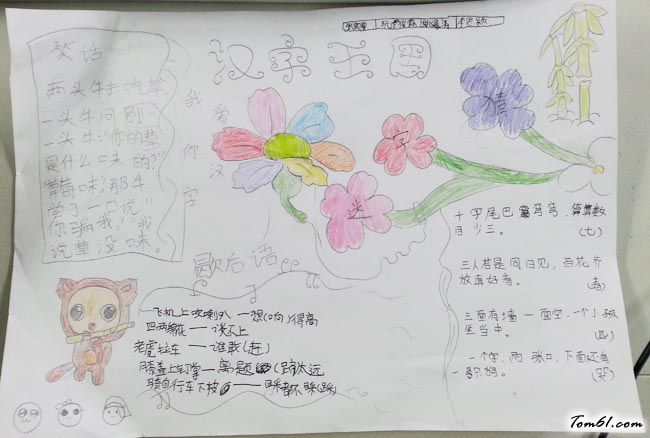 汉字王国
笑话
两头牛去吃草,
一头牛问别
一头牛:"你的草
是什么口味的?"
"草莓味"那牛
尝了一口说"
你骗我!""我
说草没味。
我爱你汉字
猜
字
谜
十字尾巴弯弯弯,算算数
目少三。
(七)
三人若是同日见,百花齐
放真好看。
(春)
三面有墙一面空,一个小孩
坐当中。
(四)
一个字,两张口,下面还有
一只狗。
(哭)
歇后语
飞机上吹喇叭——想(响)得高
四两棉花——谈不上
老虎拉车——谁敢(赶)
膝盖上钉掌——离题(蹄)太远
骑自行车下坡——睬都不睬(踩)
Tom61.com